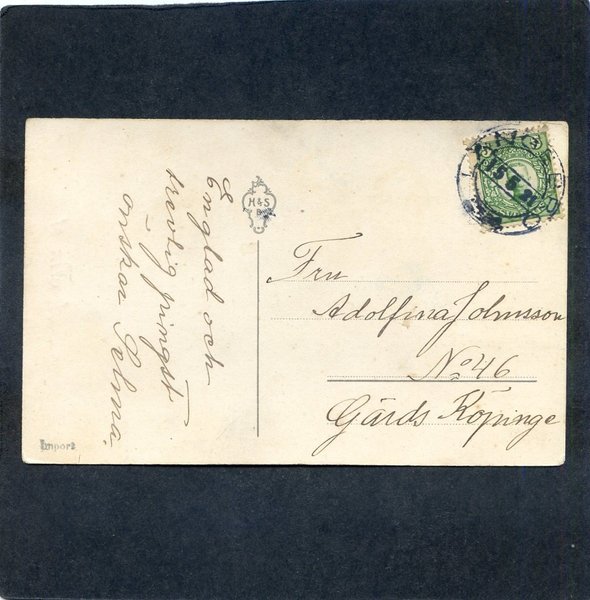 En glad och
trevlig pingst
önskar Selma.
H&S
B
Fru
Adolfina Johnsson
No 46
Gärds Köpinge
Import